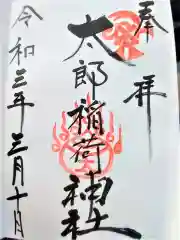 奉拝
太郎稲荷神社
令和三年三月十日